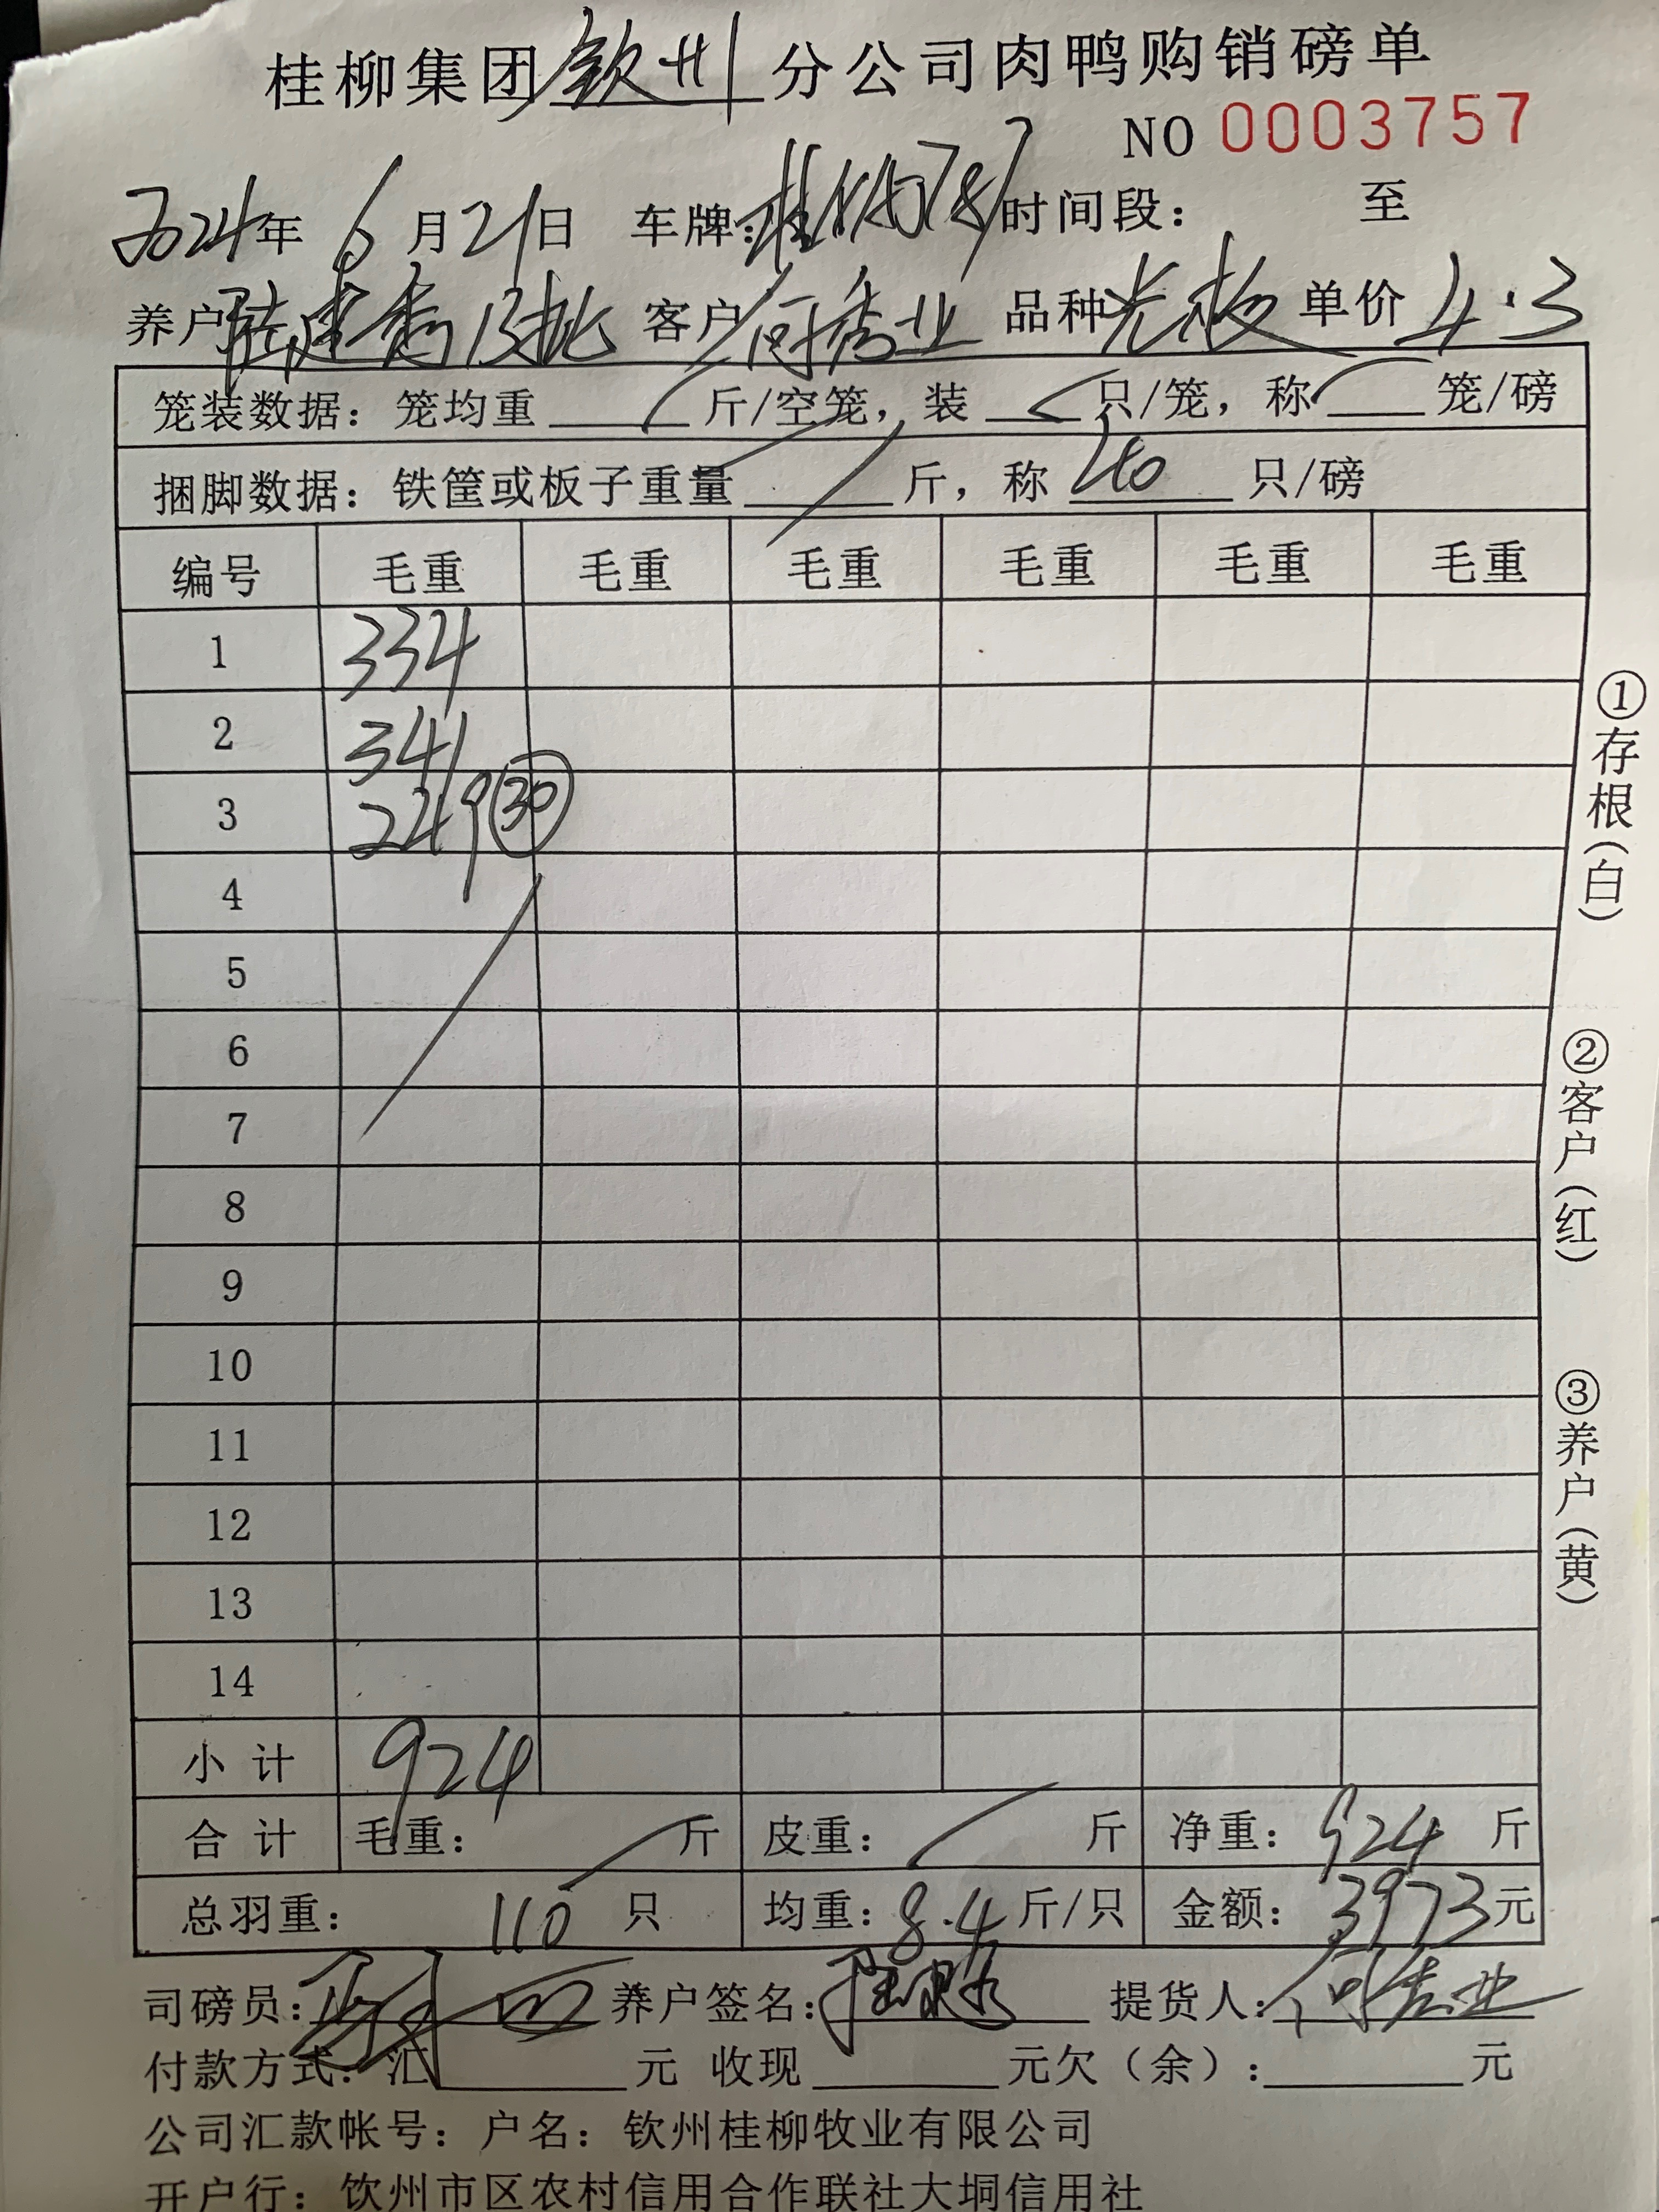 桂柳集团钦州分公司肉鸭购销磅单
NO 0003757
2024年 6月21日 车牌: 时间段: 至
养户 陆建 客户 何秀业 品种 光板 单价 4.3
笼装数据: 笼均重 斤/空笼, 装 只/笼, 称 笼/磅
捆脚数据: 铁筐或板子重量 斤, 称 40 只/磅
编号 毛重 毛重 毛重 毛重 毛重 毛重
1 334
2 341
3 249 30
4
5
6
7
8
9
10
11
12
13
14
小计 924
合计 毛重: 斤 皮重: 斤 净重: 924 斤
总羽重: 110 只 均重: 8.4 斤/只 金额: 3973元
司磅员: 养户签名: 提货人: 何秀业
付款方式: 汇 元 收现 元欠(余): 元
公司汇款帐号: 户名: 钦州桂柳牧业有限公司
开户行: 钦州市区农村信用合作联社大垌信用社
①存根(白)
②客户(红)
③养户(黄)